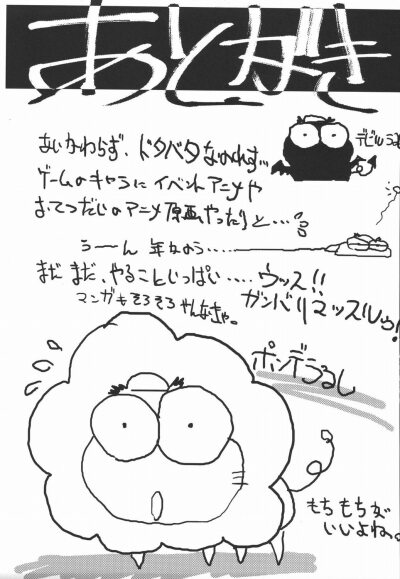 あとがき
デビルうるし
あいかわらず、ドタバタなかんじれす…
ゲームのキャラに イベントアニメや
おてつだいのアニメ原画やったりと…
うーん 年かのう…
まだまだ、やることいっぱい…ウッス!!
ガンバリマッスルゥ!
マンガもそろそろ やんなきゃ。
ポンデうるし
もちもちが
いいよねっ。